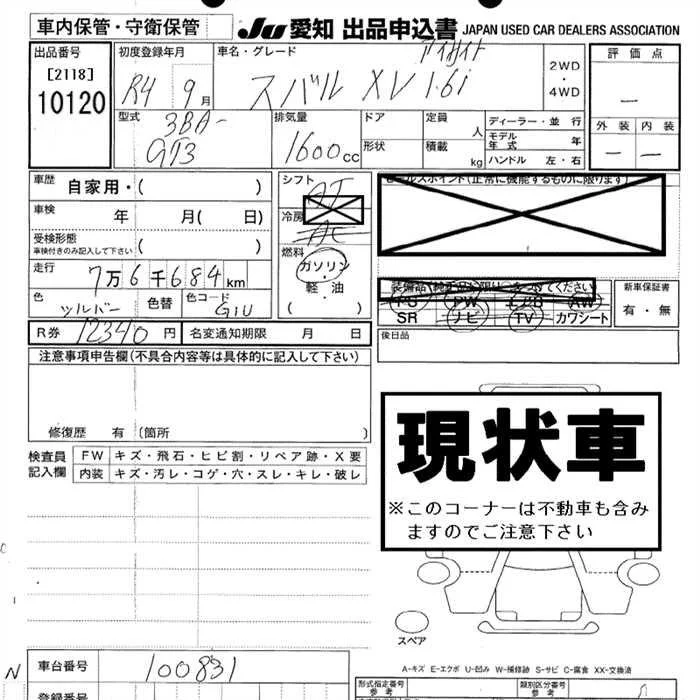 車内保管・守衛保管
JU 愛知 出品申込書 JAPAN USED CAR DEALERS ASSOCIATION
出品番号
[2118]
10120
初度登録年月
R4 9月
車名・グレード
アイサイト
スバル XV 1.6i
2WD
・
4WD
評価点
—
外装 内装
— —
型式
3BA-
GT3
排気量
1600cc
ドア
形状
定員 人
積載 kg
ディーラー・並行
モデル年式 年
ハンドル 左・右
車歴 自家用・( )
車検 年 月( 日)
受検形態
車検付きのみ記入して下さい ( )
走行 7万6千684km
色 シルバー 色替 色コード G1U
シフト AT
冷房 AC
燃料
ガソリン
・
軽・油
( )
セールスポイント(正常に機能するものに限ります)
装備品(純正品に限り○をつけてください)
PS PW エアB AW
SR ナビ TV カワシート
新車保証書
有・無
R券 12340円 名変通知期限 月 日
後日品
注意事項申告欄(不具合内容等は具体的に記入して下さい)
修復歴 有 (箇所 )
検査員記入欄
FW キズ・飛石・ヒビ割・リペア跡・X要
内装 キズ・汚レ・コゲ・穴・スレ・キレ・破レ
現状車
※このコーナーは不動車も含み
ますのでご注意下さい
スペア
A-キズ E-エクボ U-凹み W-補修跡 S-サビ C-腐食 XX-交換済
N
車台番号 100831
登録番号
形式指定番号
参考
類別区分番号
参考